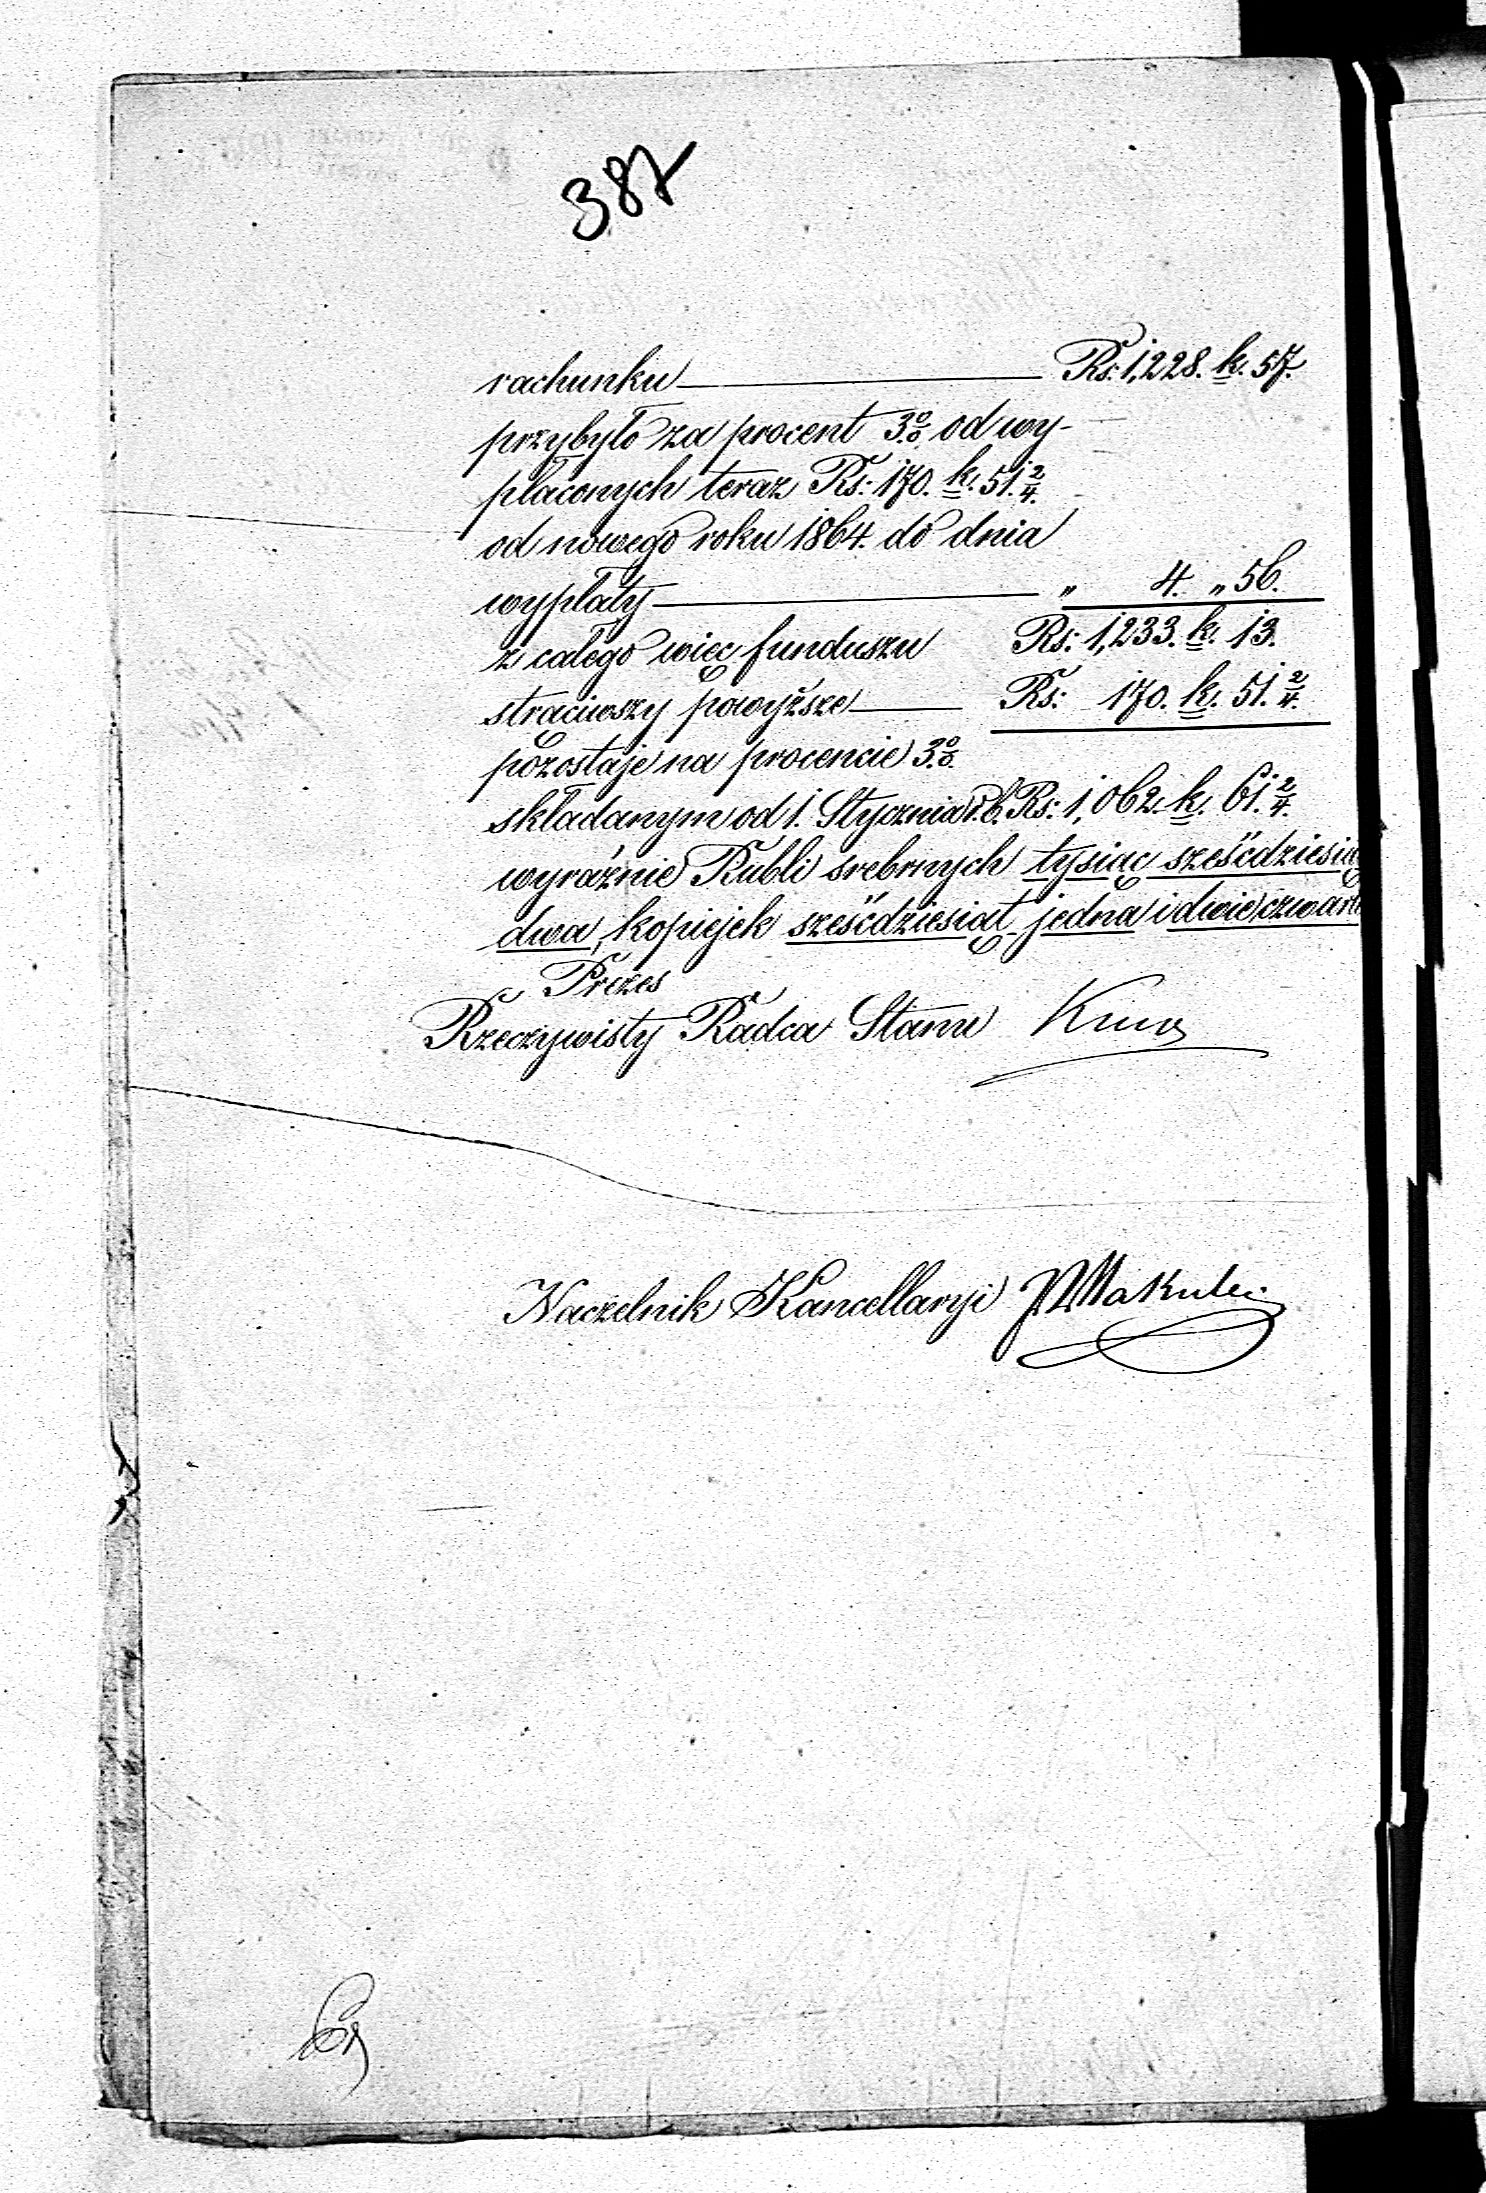 387
rachunku — Rs: 1,228. k. 57.
przybyło za procent 3% od wy-
płaconych teraz Rs: 170. k. 51 2/4.
od nowego roku 1864. do dnia
wypłaty — „ 4. „ 56.
z całego więc funduszu Rs: 1,233. k. 13.
strąciwszy powyższe — Rs: 170. k. 51 2/4.
pozostaje na procencie 3%
składanym od 1. Stycznia r.b. Rs: 1,062. k. 61 2/4.
wyraźnie Rubli srebrnych tysiąc sześćdziesiąt
dwa, kopiejek sześćdziesiąt jedna i dwie czwarte
Prezes
Rzeczywisty Radca Stanu
Naczelnik Kancellaryi